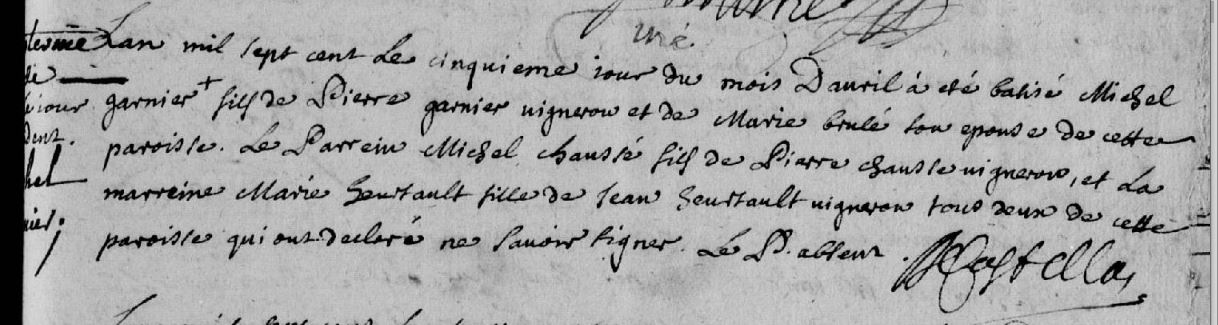 uré
Lan mil sept cent Le cinquieme iour du mois Dauril à eté batisé Michel
iour garnier + fils de Pierre garnier uigneron et de Marie brulé son epouse de cette
paroisse. Le Parrein Michel chaussé fils de Pierre chausse uigneron, et La
marreine Marie heurtault fille de Jean heurtault uigneron tous deux de cette
paroisse qui ont declaré ne sauoir signer. Le P. absent.
Castellas